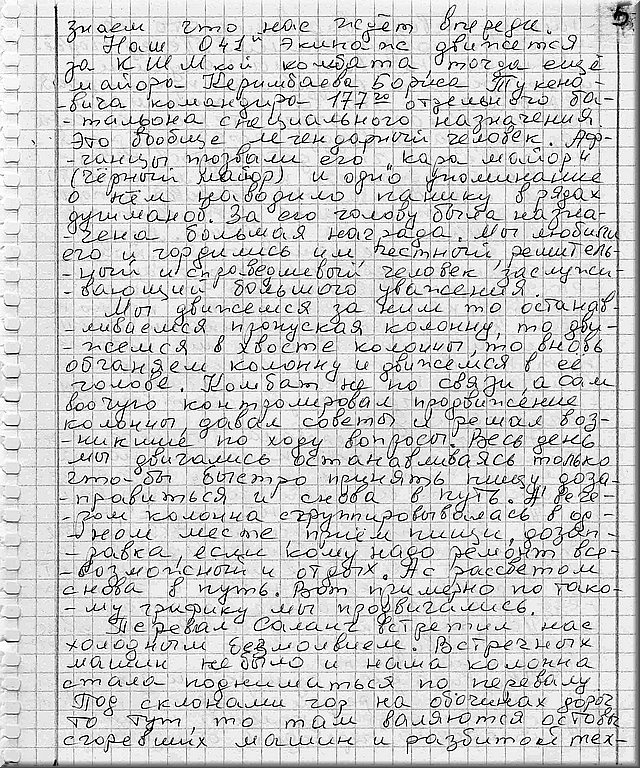 5
знаем что нас ждёт впереди.
Наш 041й экипаж движется
за КШМкой комбата, тогда ещё
майора Керимбаева Бориса Тукено-
-вича командира 177го отдельного ба-
-тальона специального назначения
Это вообще легендарный человек. Аф-
-ганцы прозвали его „кара майор"
(чёрный майор) и одно упоминание
о нём наводило панику в рядах
душманов. За его голову была назна-
-чена большая награда. Мы любили
его и гордились им, честный, решитель-
-ный и справедливый человек заслужи-
-вающий большого уважения.
Мы движемся за ним то останав
-ливаемся пропуская колонну, то дви-
-жемся в хвосте колонны, то вновь
обгоняем колонну и движемся в её
голове. Комбат не по связи, а сам
воочую контролировал продвижение
колонны, давал советы и решал воз-
-никшие по ходу вопросы. Весь день
мы двигались останавливаясь только
что-бы быстро принять пищу доза-
-правиться и снова в путь. А вече-
-ром колонна сгруппировывалась в од-
-ном месте приём пищи, дозап-
-равка, если кому надо ремонт все-
-возможный и отдых. А с рассветом
снова в путь. Вот примерно по тако-
-му графику мы продвигались.
Перевал Саланг встретил нас
холодным безмолвием. Встречных
машин не было и наша колонна
стала подниматься по перевалу
Под склонами гор на обочинах дорог
то тут, то там валяются остовы
сгоревших машин и разбитой тех-